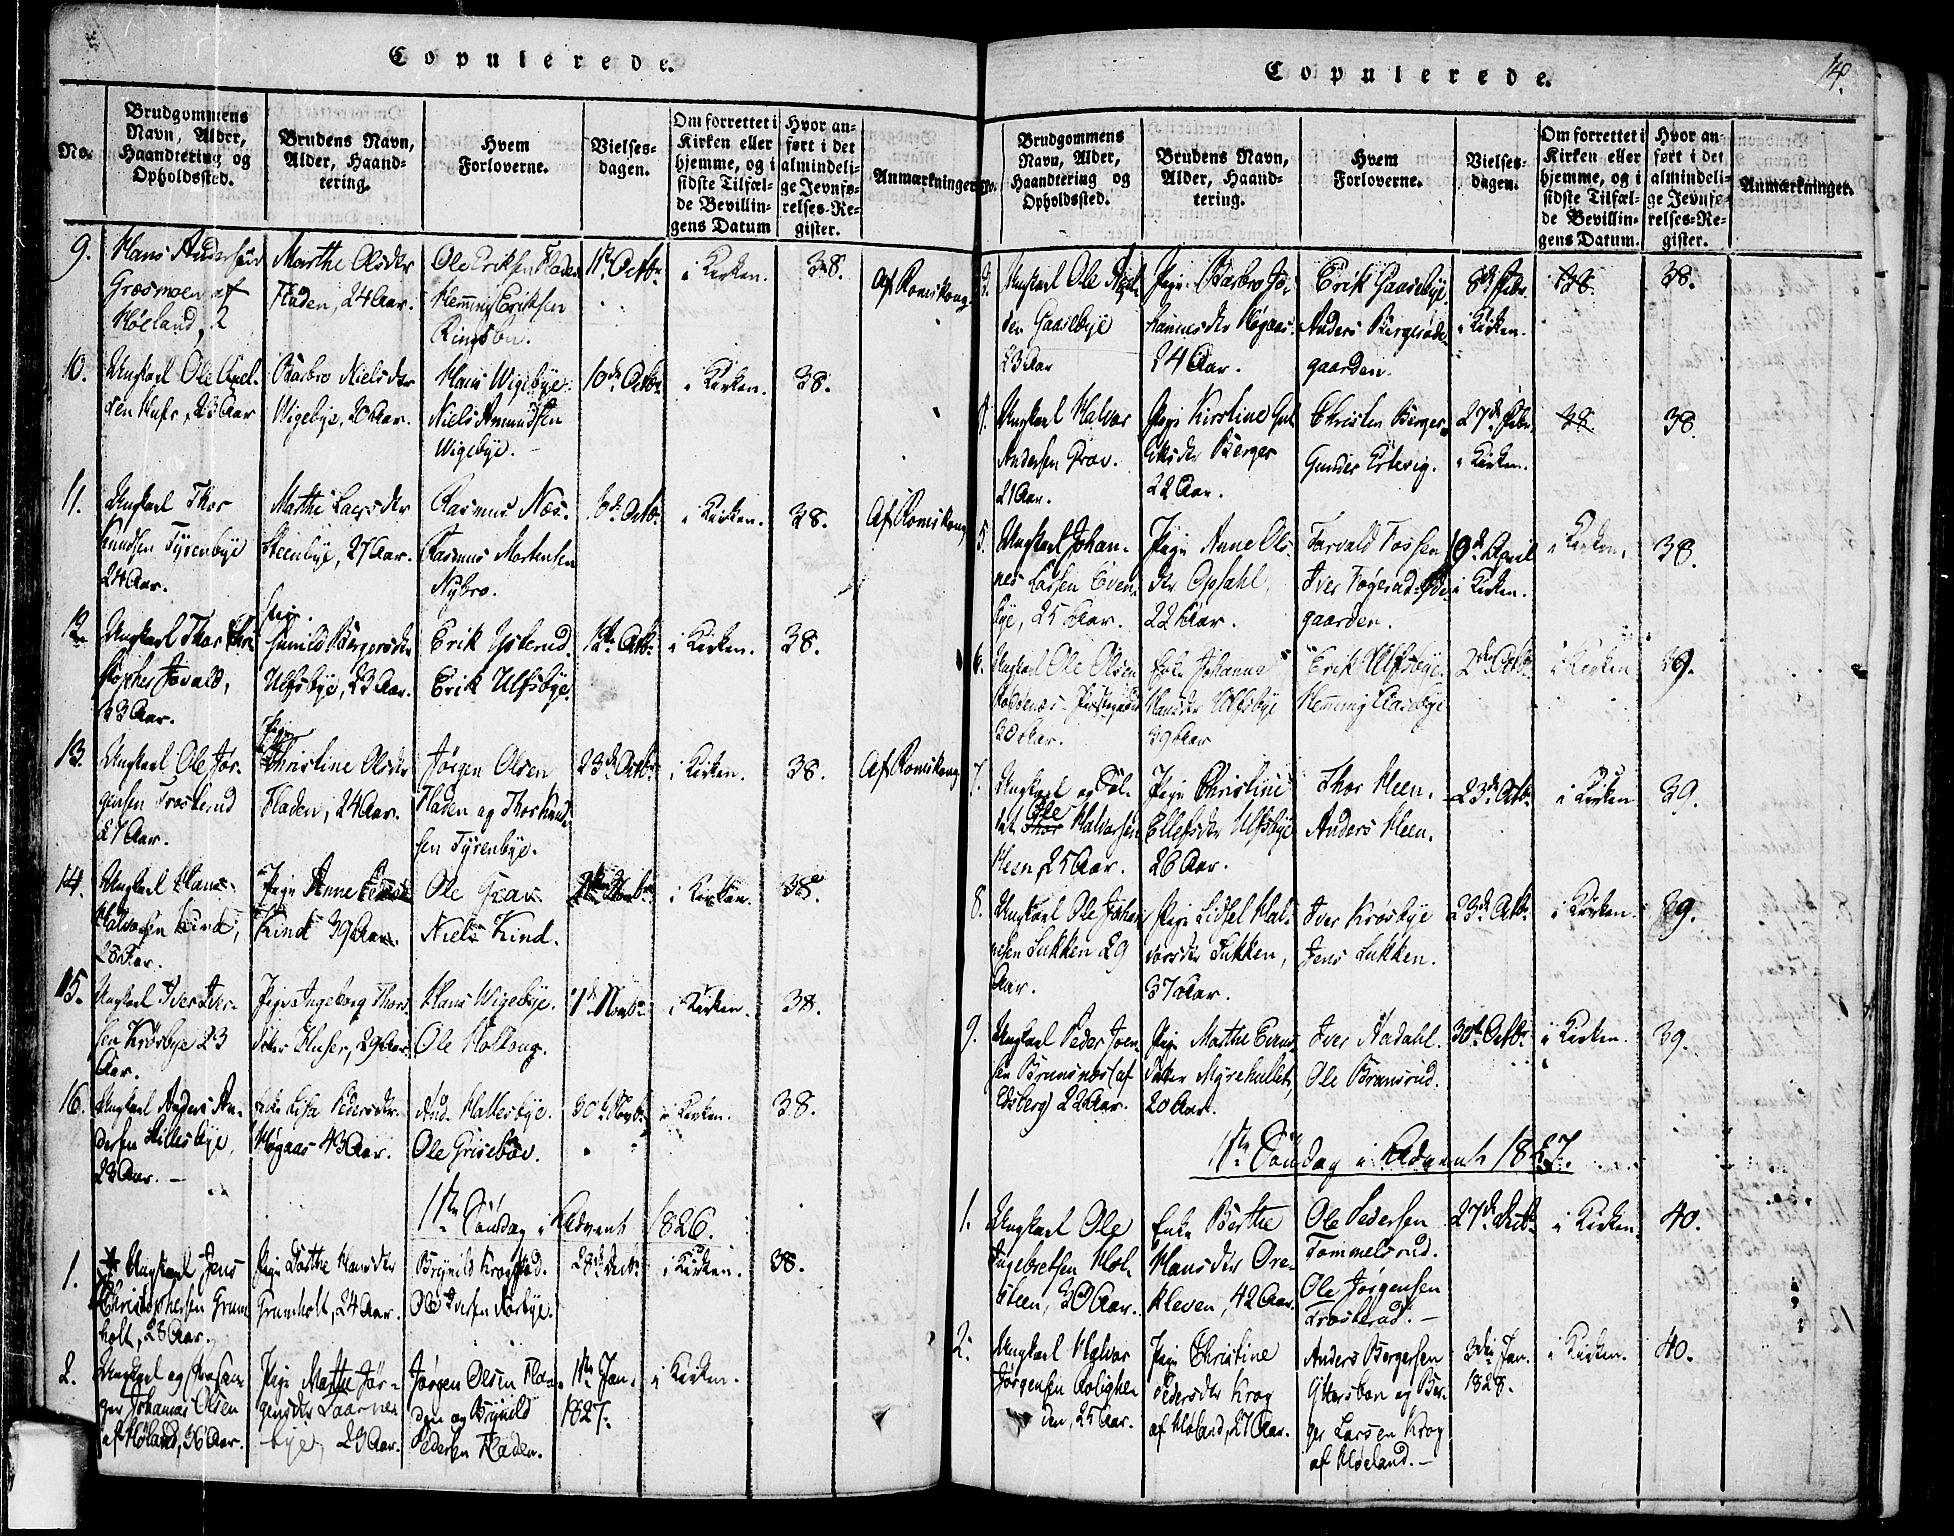 Copulerede.
No.
Brudgommens
Navn, Alder,
Haandtering og
Opholdssted.
Brudens Navn,
Alder, Haand-
tering.
Hvem
Forloverne.
Vielses-
dagen.
Om forrettet i
Kirken eller
hjemme, og i
sidste Tilfæl-
de Bevillin-
gens Datum
Hvor an-
ført i det
almindeli-
ge Jevnfø-
relses-Re-
gister.
Anmærkninger
9.
Hans Andersen
Græsmoen af
Høeland,
Marthe Olsdtr
Fladen, 24 Aar.
Ole Eriksen Fladen
Hemming Eriksen
11te Octbr
i Kirken.
38.
Af Romskoug
10.
Ungkarl Ole Axel-
sen Hufs, 23 Aar
Barbro Nielsdtr
Wigebye, 20 Aar.
Hans Wigebye.
Niels Amundsen
Wigebye.
10de Octbr
i Kirken.
38.
11.
Ungkarl Thor
Knudsen Tyrenbye
24 Aar.
Marthe Larsdtr
Steenbye, 27 Aar.
Rasmus Næs.
Rasmus Mortensen
Nybro.
10de Octbr
i Kirken.
38.
Af Romskoug
12.
Ungkarl Thor Chri-
stopher
33 Aar.
Pige
Gunild Børgersdtr
Ulfsbye, 23 Aar.
Erik Ysterud.
Erik Ulfsbye.
12te Octbr
i Kirken.
38.
13.
Ungkarl Ole Jør-
gensen Trosterud
27 Aar.
Pige
Christine Olsdtr
Fladen, 24 Aar.
Jørgen Olsen
Fladen og Thor Knud-
sen Tyrenbye.
23de Octbr
i Kirken.
38.
Af Romskoug
14.
Ungkarl Hans
Halvorsen Lund,
28 Aar.
Pige Anne
Kind 39 Aar.
Ole Grav
Niels Kind.
i Kirken.
38.
15.
Ungkarl Iver Iver-
sen Krosbye 23
Aar.
Pige Ingeborg Thors-
dater Huser, 29 Aar.
Hans Wigebye.
Ole Holtoug.
1de Novbr
i Kirken.
38.
16.
Ungkarl Anders An-
dersen Hillesbye,
23 Aar.
Enke Lisa Pedersdtr
Høgaas 43 Aar.
And. Hallesbye.
Ole Grisebøe.
30te Novbr
i Kirken.
38.
1ste Søndag i Advent 1826.
1.
Ungkarl Jens
Christophersen Grum-
holt, 28 Aar.
Pige Dorthe Hansdtr
Grumholt, 24 Aar.
Brynild Krogstad.
Ole Iversen Narbye.
28de Decbr
i Kirken.
38.
2.
Ungkarl og Kirkesan-
ger Johannes Olsen
af Høland, 36 Aar.
Pige Marthe Jør-
gensdtr Laarnes-
bye, 23 Aar.
Jørgen Olsen Fla-
den og Brynild
Pedersen Fladen.
11te Jan.
1827.
i Kirken.
Copulerede.
14.
No.
Brudgommens
Navn, Alder,
Haandtering og
Opholdssted.
Brudens Navn,
Alder, Haand-
tering.
Hvem
Forloverne.
Vielses-
dagen.
Om forrettet i
Kirken eller
hjemme, og i
sidste Tilfæl-
de Bevillin-
gens Datum.
Hvor an-
ført i det
almindeli-
ge Jevnfø-
relses-Re-
gister.
Anmærkninger.
3.
Ungkarl Ole
sen Gaasebye
23 Aar
Pige Barbro Jo-
hannesdtr Høgaas.
24 Aar.
Erik Gaasebye.
Anders Bergerøde-
gaarden.
8de Febr.
i Kirken.
38.
38.
4.
Ungkarl Halvor
Andersen Grav.
21 Aar.
Pige Kirstine Gul-
liksdtr Berger
22 Aar.
Christen Berger.
Gunder Ertevig.
27de Febr.
i Kirken.
38
38.
5.
Ungkarl Johan-
nes Larsen Even-
bye, 25 Aar.
Pige Anne Ols-
dtr Opsahl,
22 Aar.
Tarvald Fossen
Iver Fogerud-Øde-
gaarden.
19de April
i Kirken.
i Kirken.
38.
6.
Ungkarl Ole Olsen
30 Aar.
Enke Johanne
Hansdtr Ulfsbye
39 Aar
Erik Ulfsbye.
Hemming Aasebye
2den Octbr
i Kirken
39.
7.
Ungkarl og Sol-
dat Thor Ole Halvorsen
Heen, 25 Aar.
Pige Christine
Ellefsdtr Ulfsbye
26 Aar.
Thor Heen.
Anders Heen.
23de Octbr
i Kirken
39.
8.
Ungkarl Ole Johan-
nesen Lukken 29
Aar.
Pige Lidsel Hal-
vorsdtr Lukken,
37 Aar.
Iver Krosbye
Jens Lukken.
23de Octbr
i Kirken.
39.
9.
Ungkarl Peder Joen-
sen Brunsnæs (af
Edsberg) 22 Aar.
Pige Marthe Evens-
datter Myrehullet,
20 Aar.
Iver Nadahl.
Ole Brunsrud.
30te Octbr
i Kirken.
39.
1ste Søndag i Advent 1827.
1.
Ungkarl Ole
Ingebretsen Hol-
steen, 30 Aar.
Enke Berthe
Hansdtr Ore-
kleven, 42 Aar.
Ole Pedersen
Tommelsrud.
Ole Jørgensen
Trosterud.
27de Decbr
i Kirken
40.
2.
Ungkarl Halvor
Jørgensen Rolighe-
den, 25 Aar.
Pige Christine
Pedersdtr Krog
af Høland, 27 Aar.
Anders Børgersen
Gittersbøe og Bør-
ger Larsen Krog
af Høeland.
3die Jan.
1828.
i Kirken.
40.